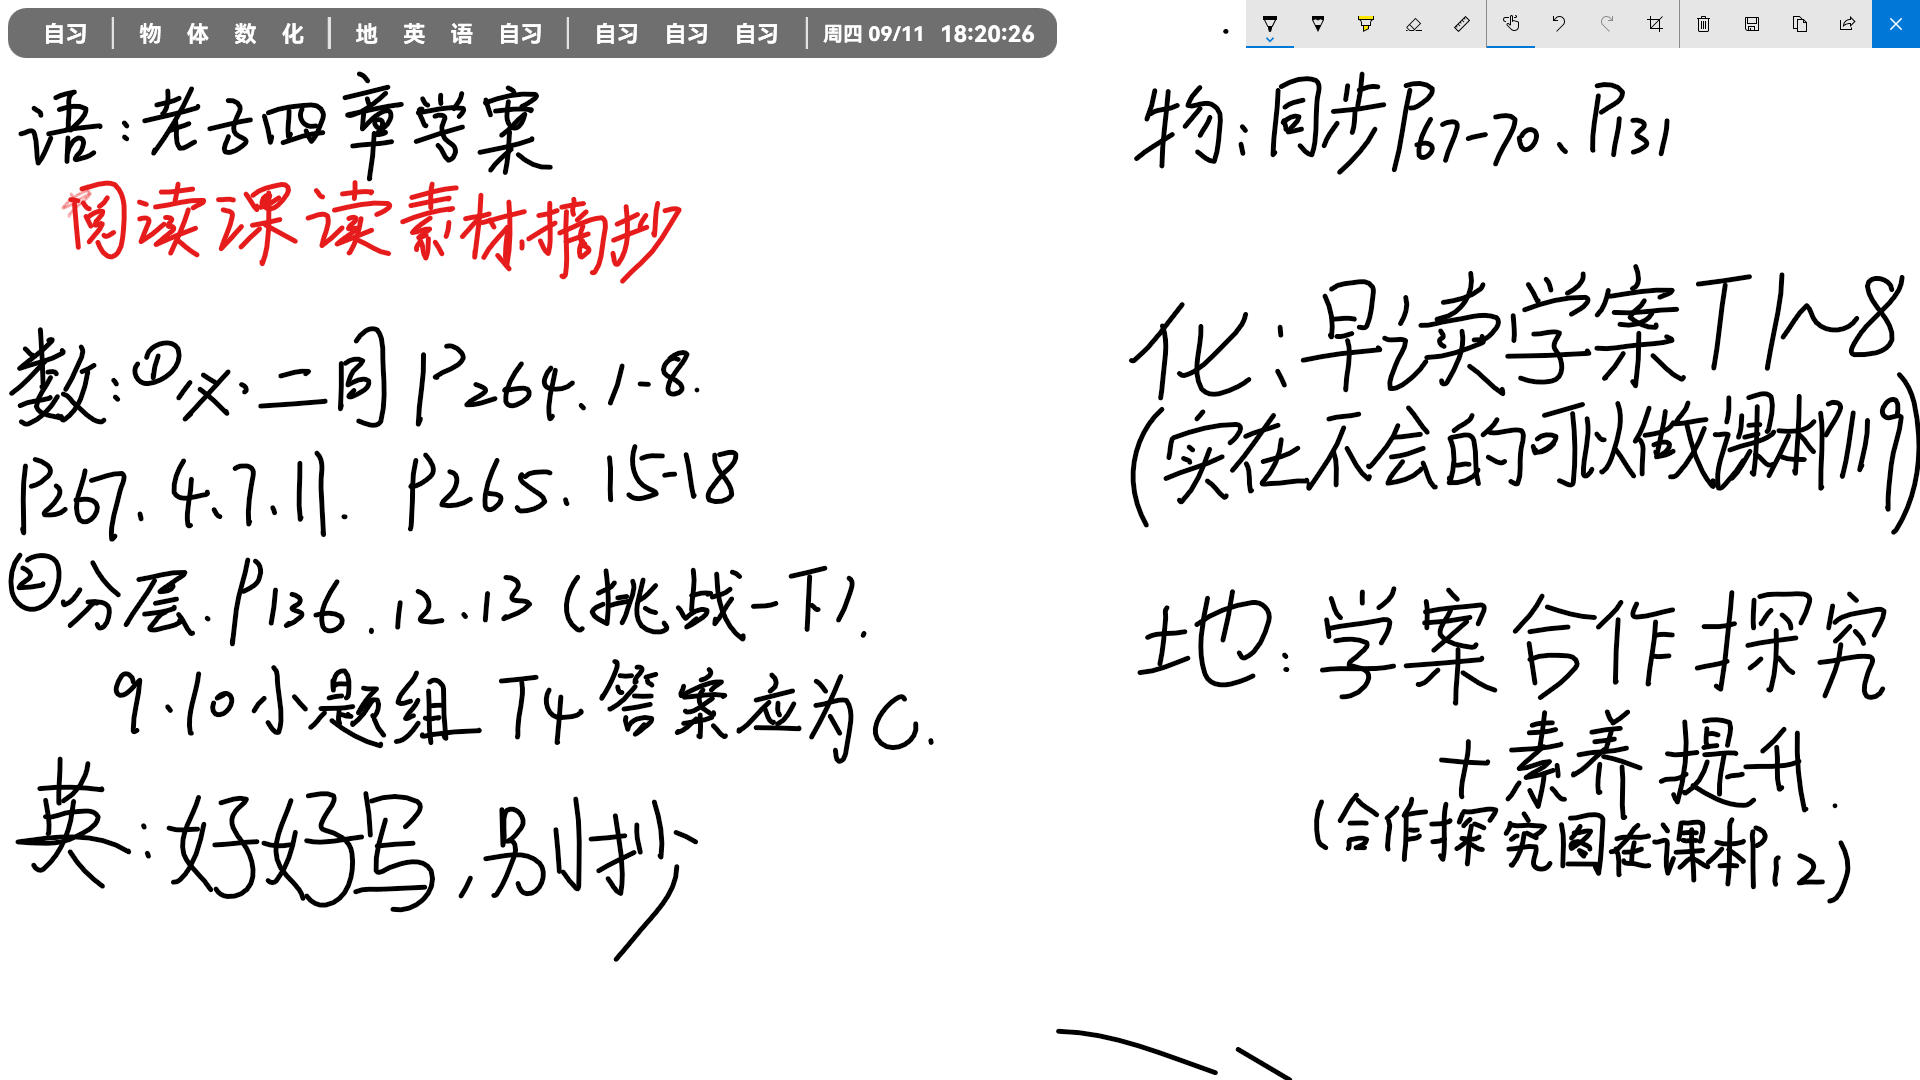 自习 | 物 体 数 化 | 地 英 语 自习 | 自习 自习 自习 | 周四 09/11 18:20:26
语:老子四章学案
阅读课读素材摘抄
数:①义·二同 P264. 1-8.
P267. 4. 7. 11. P265. 15-18
②分层. P136. 12. 13 (挑战一下).
9.10小题组 T4 答案应为 C.
英:好好写,别抄
物:同步P67-70、P131
化:早读学案 T1~8
(实在不会的可以做课本P119)
地:学案合作探究
+素养提升.
(合作探究图在课本P12)